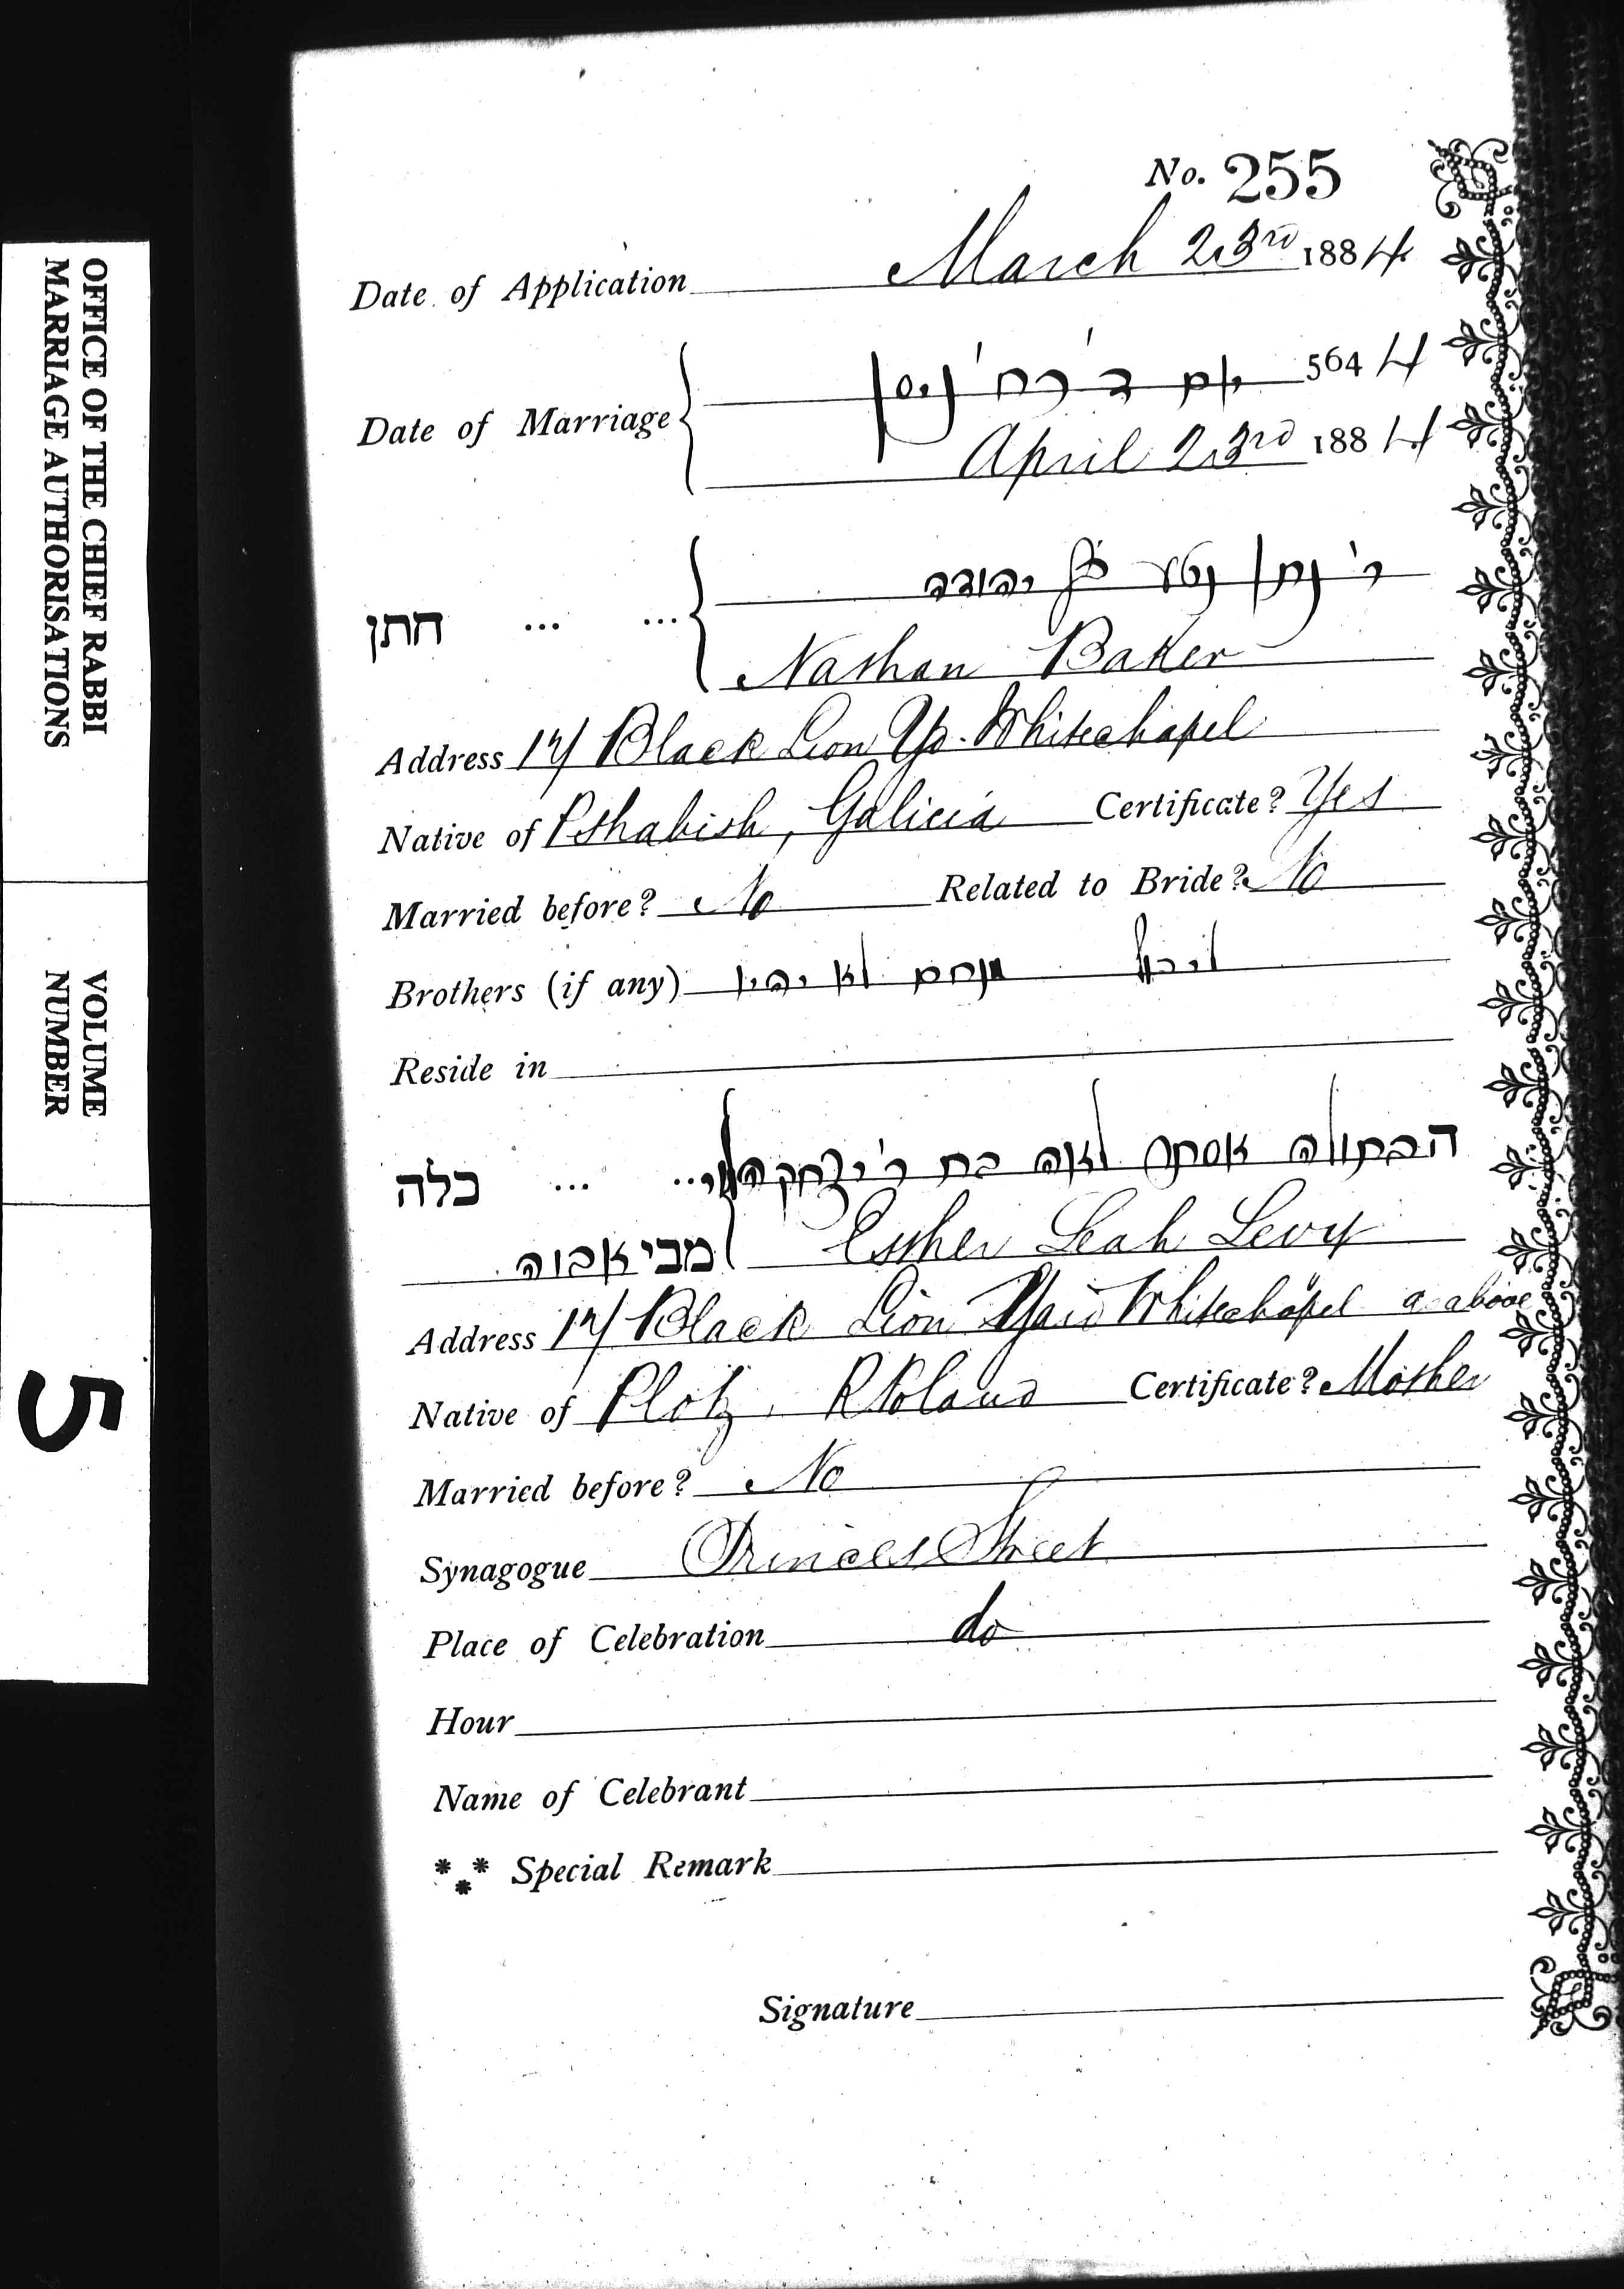 OFFICE OF THE CHIEF RABBI
MARRIAGE AUTHORISATIONS
VOLUME
NUMBER
5
No. 255
Date of Application March 23rd 1884
Date of Marriage יום ד' רח' ניסן 5644
April 23rd 1884
חתן ... ... ר' נתן נטע בן יהודה
Nathan Baker
Address 17 Black Lion Yd. Whitechapel
Native of Pshabish, Galicia Certificate? Yes
Married before? No Related to Bride? No
Brothers (if any) מנחם לא יהיו
Reside in
כלה ... ... הבתולה אסתר לאה בת ר' יצחק הלוי
מבי אבוה Esther Leah Levy
Address 17 Black Lion Yard Whitechapel as above
Native of Plotz, R Poland Certificate? Mother
Married before? No
Synagogue Princes Street
Place of Celebration do
Hour
Name of Celebrant
*** Special Remark
Signature